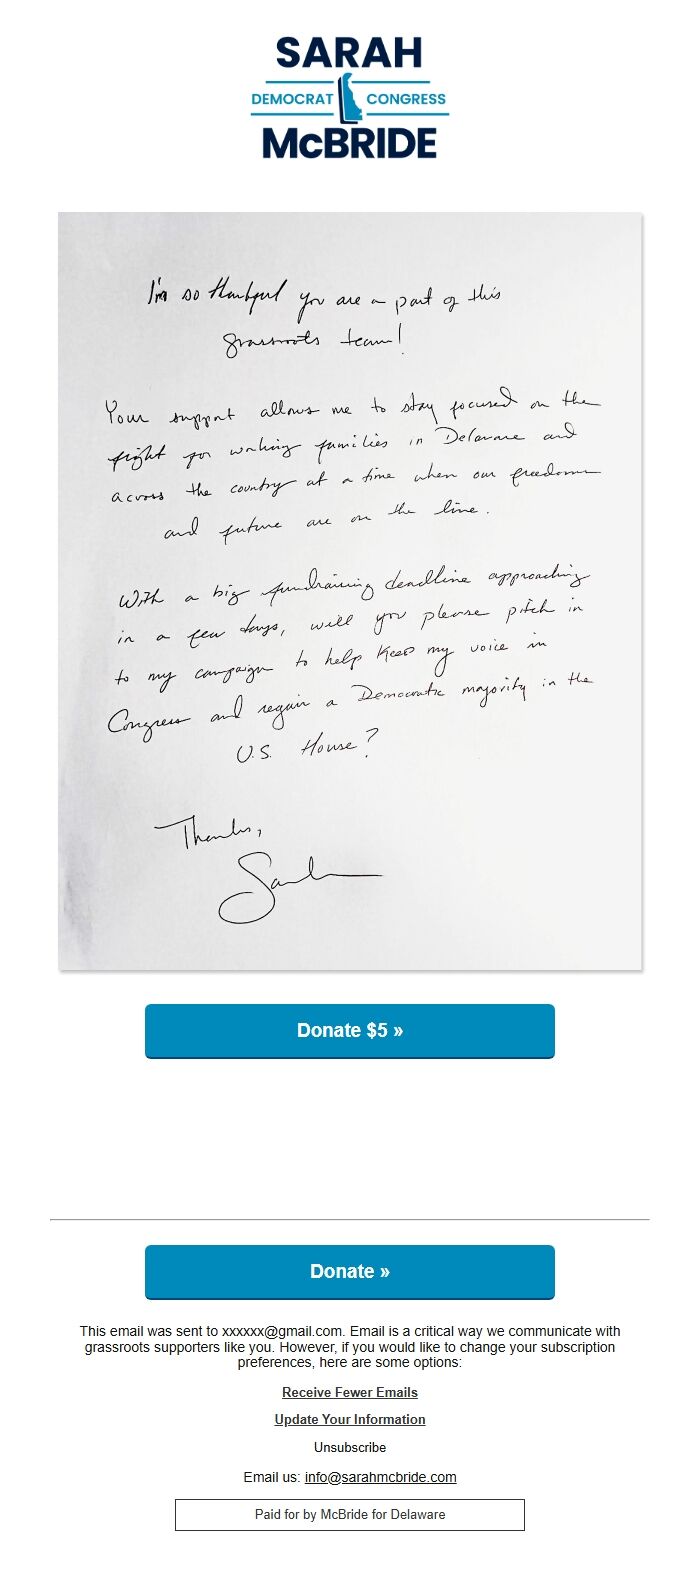 SARAH
DEMOCRAT CONGRESS
McBRIDE
I'm so thankful you are a part of this
grassroots team!
Your support allows me to stay focused on the
fight for working families in Delaware and
across the country at a time when our freedoms
and future are on the line.
With a big fundraising deadline approaching
in a few days, will you please pitch in
to my campaign to help keep my voice in
Congress and regain a Democratic majority in the
U.S. House?
Thanks,
Sarah
Donate $5 »
Donate »
This email was sent to xxxxxx@gmail.com. Email is a critical way we communicate with
grassroots supporters like you. However, if you would like to change your subscription
preferences, here are some options:
Receive Fewer Emails
Update Your Information
Unsubscribe
Email us: info@sarahmcbride.com
Paid for by McBride for Delaware